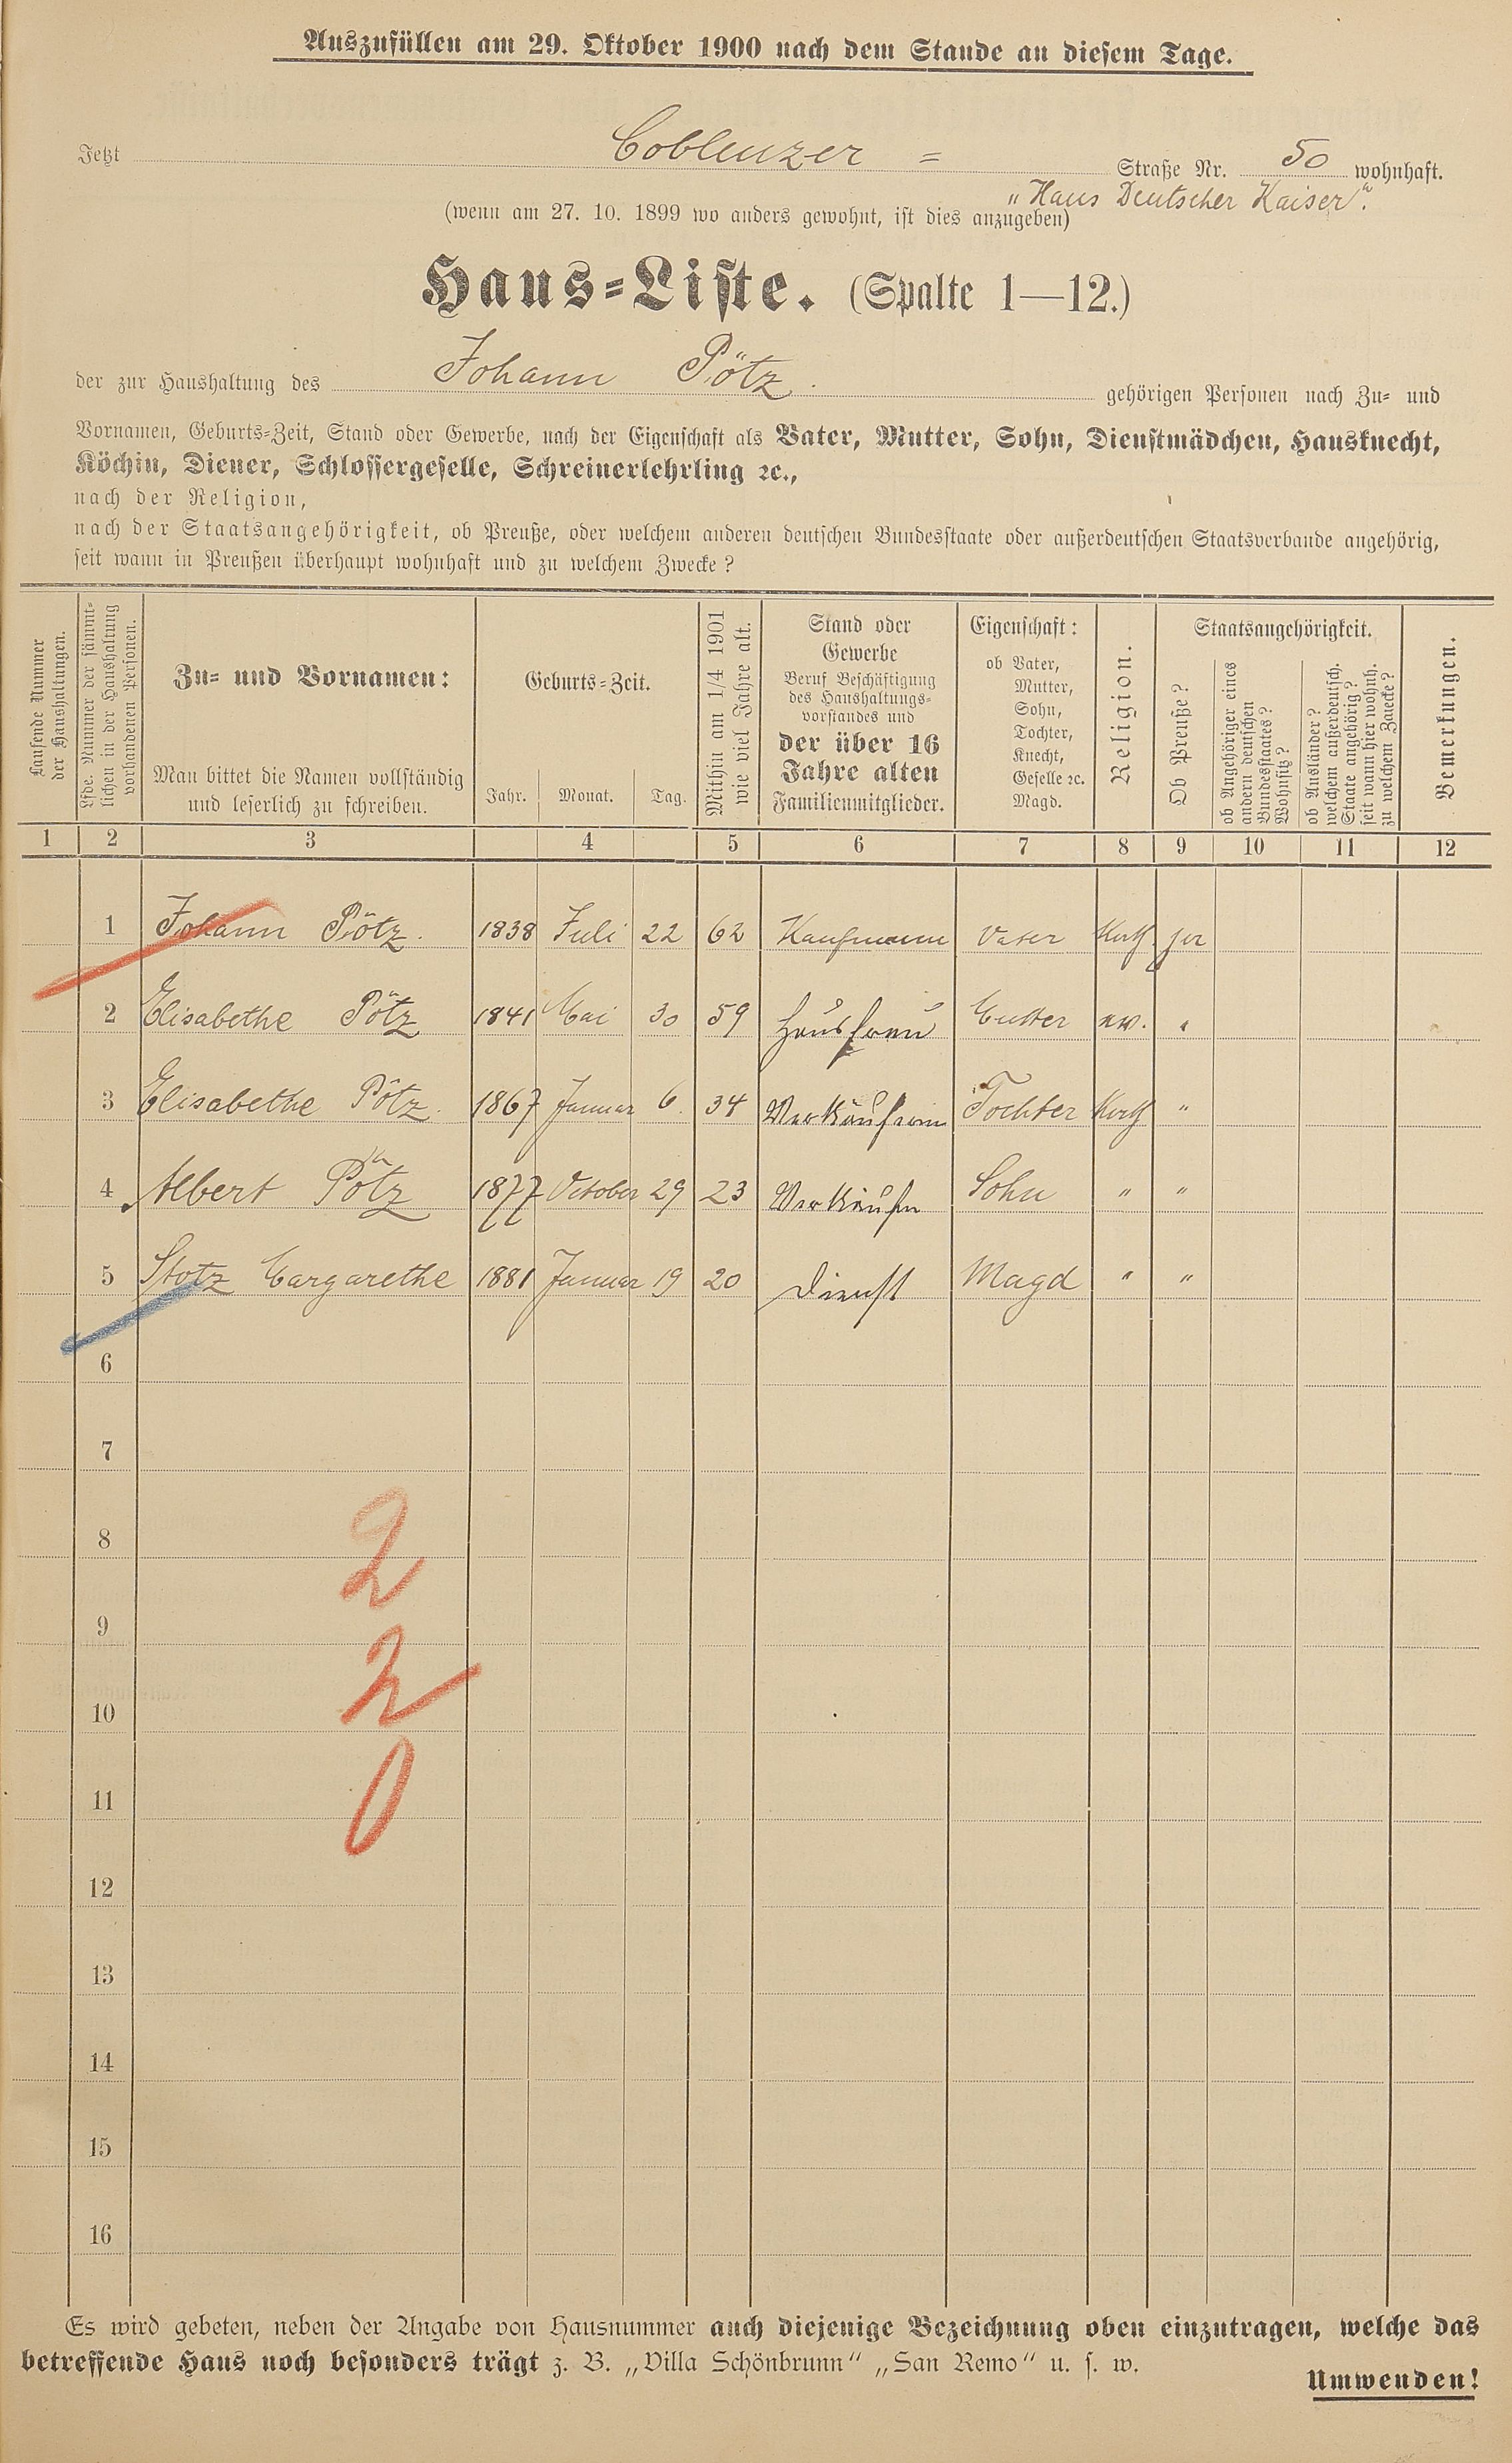 Auszufüllen am 29. Oktober 1900 nach dem Stande an diesem Tage.
Jetzt Coblenzer = Straße Nr. 50 wohnhaft.
„Haus Deutscher Kaiser".
(wenn am 27. 10. 1899 wo anders gewohnt, ist dies anzugeben)
Haus=Liste. (Spalte 1—12.)
der zur Haushaltung des Johann Pötz. gehörigen Personen nach Zu= und
Vornamen, Geburts=Zeit, Stand oder Gewerbe, nach der Eigenschaft als Vater, Mutter, Sohn, Dienstmädchen, Hausknecht,
Köchin, Diener, Schlossergeselle, Schreinerlehrling ꝛc.,
nach der Religion,
nach der Staatsangehörigkeit, ob Preuße, oder welchem anderen deutschen Bundesstaate oder außerdeutschen Staatsverbande angehörig,
seit wann in Preußen überhaupt wohnhaft und zu welchem Zwecke?
Laufende Nummer
der Haushaltungen.
Lfde. Nummer der sämmt-
lichen in der Haushaltung
vorhandenen Personen.
Zu= und Vornamen:
Man bittet die Namen vollständig
und leserlich zu schreiben.
Geburts=Zeit.
Jahr. Monat. Tag.
Mithin am 1/4 1901
wie viel Jahre alt.
Stand oder
Gewerbe
Beruf Beschäftigung
des Haushaltungs-
vorstandes und
der über 16
Jahre alten
Familienmitglieder.
Eigenschaft:
ob Vater,
Mutter,
Sohn,
Tochter,
Knecht,
Geselle ꝛc.
Magd.
Religion.
Staatsangehörigkeit.
Ob Preuße?
ob Angehöriger eines
andern deutschen
Bundesstaates?
Wohnsitz?
ob Ausländer?
welchem außerdeutsch.
Staate angehörig?
seit wann hier wohnh.
zu welchem Zwecke?
Bemerkungen.
1 2 3 4 5 6 7 8 9 10 11 12
1 Johann Pötz. 1838 Juli 22 62 Kaufmann Vater Kath.
2 Elisabethe Pötz 1841 Mai 30 59 Hausfrau Mutter ev. "
3 Elisabethe Pötz. 1867 Januar 6. 34 Verkäuferin Tochter Kath "
4 Albert Pötz 1877 October 29 23 Verkäufer Sohn " "
5 Stotz Margarethe 1881 Januar 19 20 Dienst Magd " "
6
7
8
2
9
2
10
11
0
12
13
14
15
16
Es wird gebeten, neben der Angabe von Hausnummer auch diejenige Bezeichnung oben einzutragen, welche das
betreffende Haus noch besonders trägt z. B. „Villa Schönbrunn" „San Remo" u. s. w.
Umwenden!